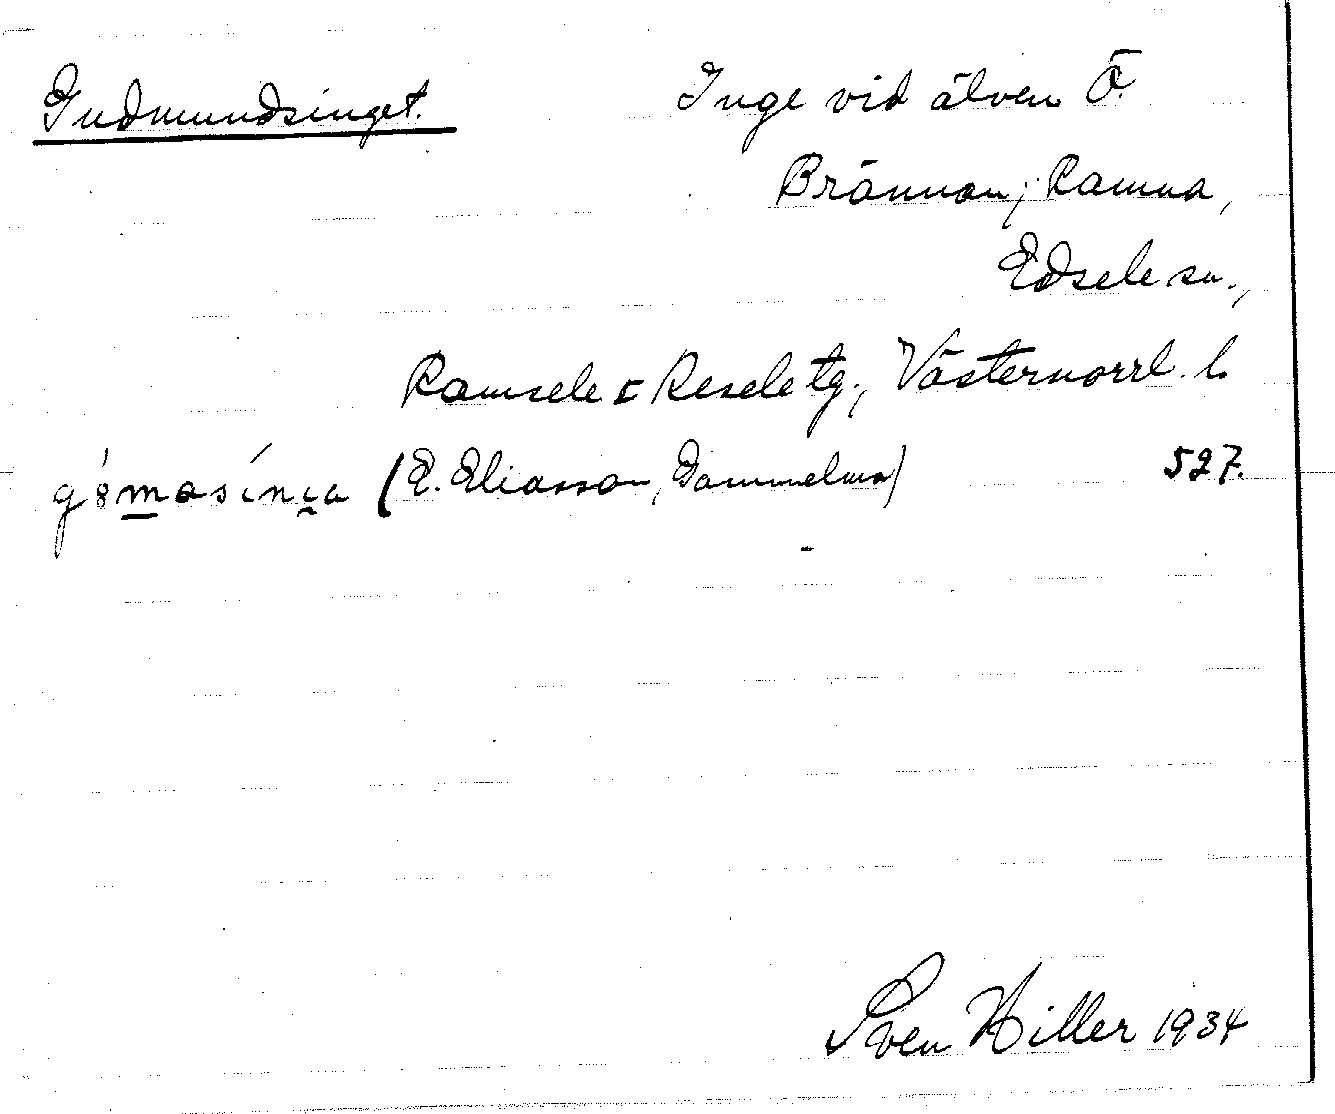 Gudmundsinget. Inge vid älven Ö.
Brännan, Ramna,
Edsele sn.,
Ramsele o Resele tg., Västernorrl. l.
(E. Eliasson, Gammelmo) 527.
Sven Hiller 1934